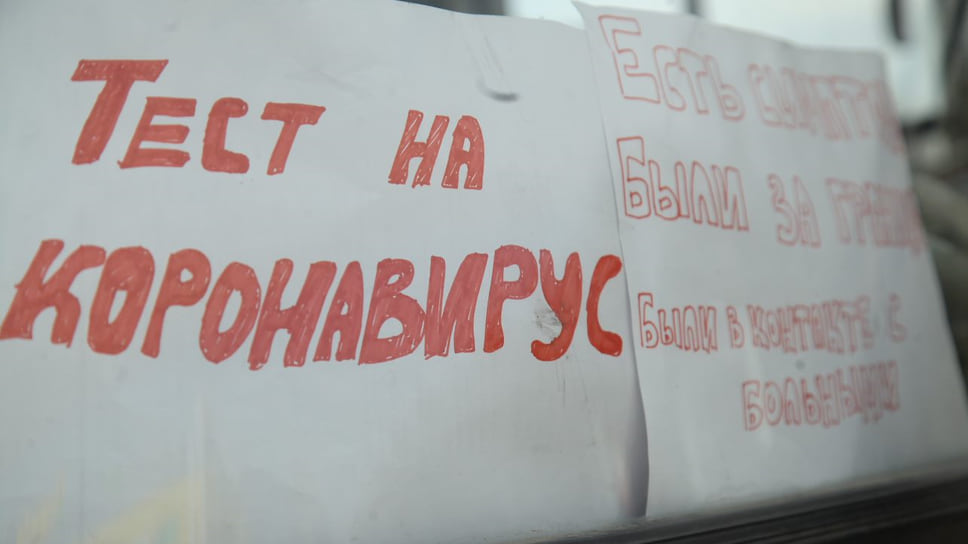 Тест на
коронавирус
Есть
Были за границ
Были в контакте с
больными